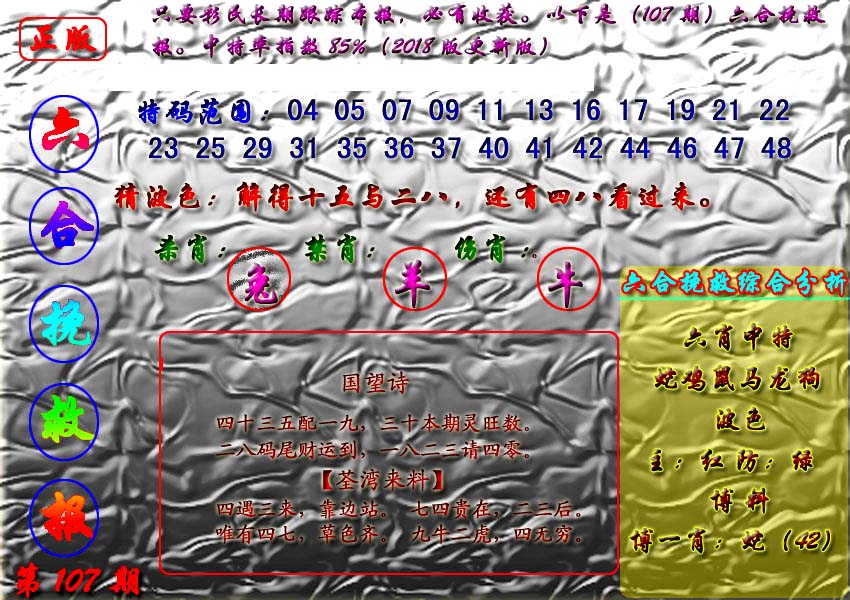 正版
只要彩民长期跟踪本报，必有收获。以下是（107 期）六合挽救
报。中特率指数 85%（2018 版更新版）
六合挽救报
第 107 期
特码范围：04 05 07 09 11 13 16 17 19 21 22
23 25 29 31 35 36 37 40 41 42 44 46 47 48
猜波色：解得十五与二八，还有四八看过来。
杀肖：兔 禁肖：羊 伤肖：牛
国望诗
四十三五配一九，三十本期灵旺数。
二八码尾财运到，一八二三请四零。
【荃湾来料】
四遇三来，靠边站。 七四贵在，二三后。
唯有四七，草色齐。 九牛二虎，四无穷。
六合挽救综合分析
六肖中特
蛇鸡鼠马龙狗
波色
主：红 防：绿
博料
博一肖：蛇（42）